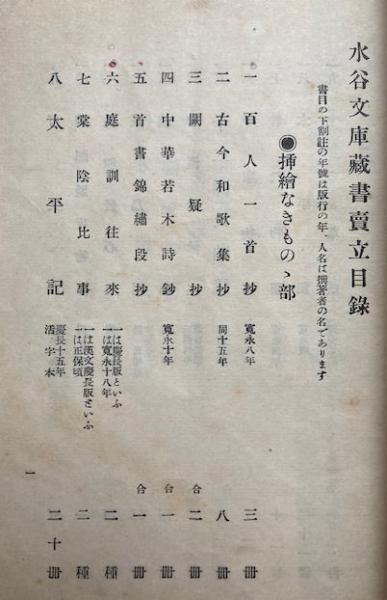 水谷文庫藏書賣立目錄
書目の下割註の年號は版行の年、人名は撰著者の名であります
◉挿繪なきものゝ部
一 百人一首抄 寛永八年 三冊
二 古今和歌集抄 同十五年 八冊
三 闕疑抄 合二冊
四 中華若木詩鈔 寛永十年 合一冊
五 首書錦繡段抄 合一冊
六 庭訓往來 一は慶長版といふ 一は寛永十八年 二種
七 棠陰比事 一は漢文慶長版といふ 一は正保頃 二種
八 太平記 慶長十五年 活字本 二十冊
一